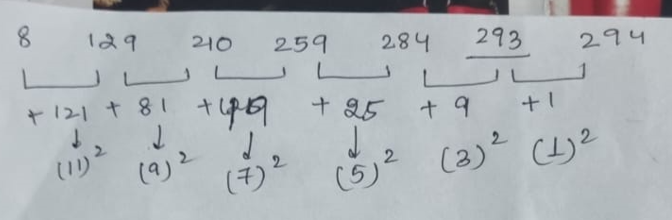 8 129 210 259 284 293 294
+ 121 + 81 + 49 + 25 + 9 + 1
↓ ↓ ↓ ↓
(11)² (9)² (7)² (5)² (3)² (1)²